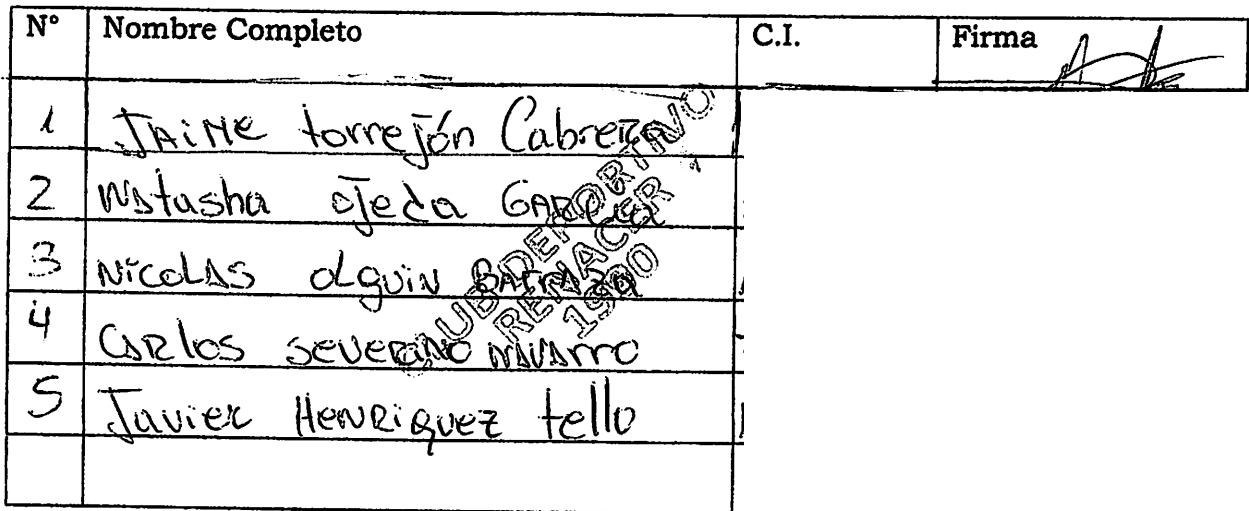 N° Nombre Completo C.I. Firma
1 JAIME torrejón Cabrera
2 Natasha ojeda GARCIA
3 NicoLAS olguin BATRAZA
4 CARlos severino NAVARRO
5 Javier HENRIQUEZ tello
CLUB DEPORTIVO
RENACER
1990